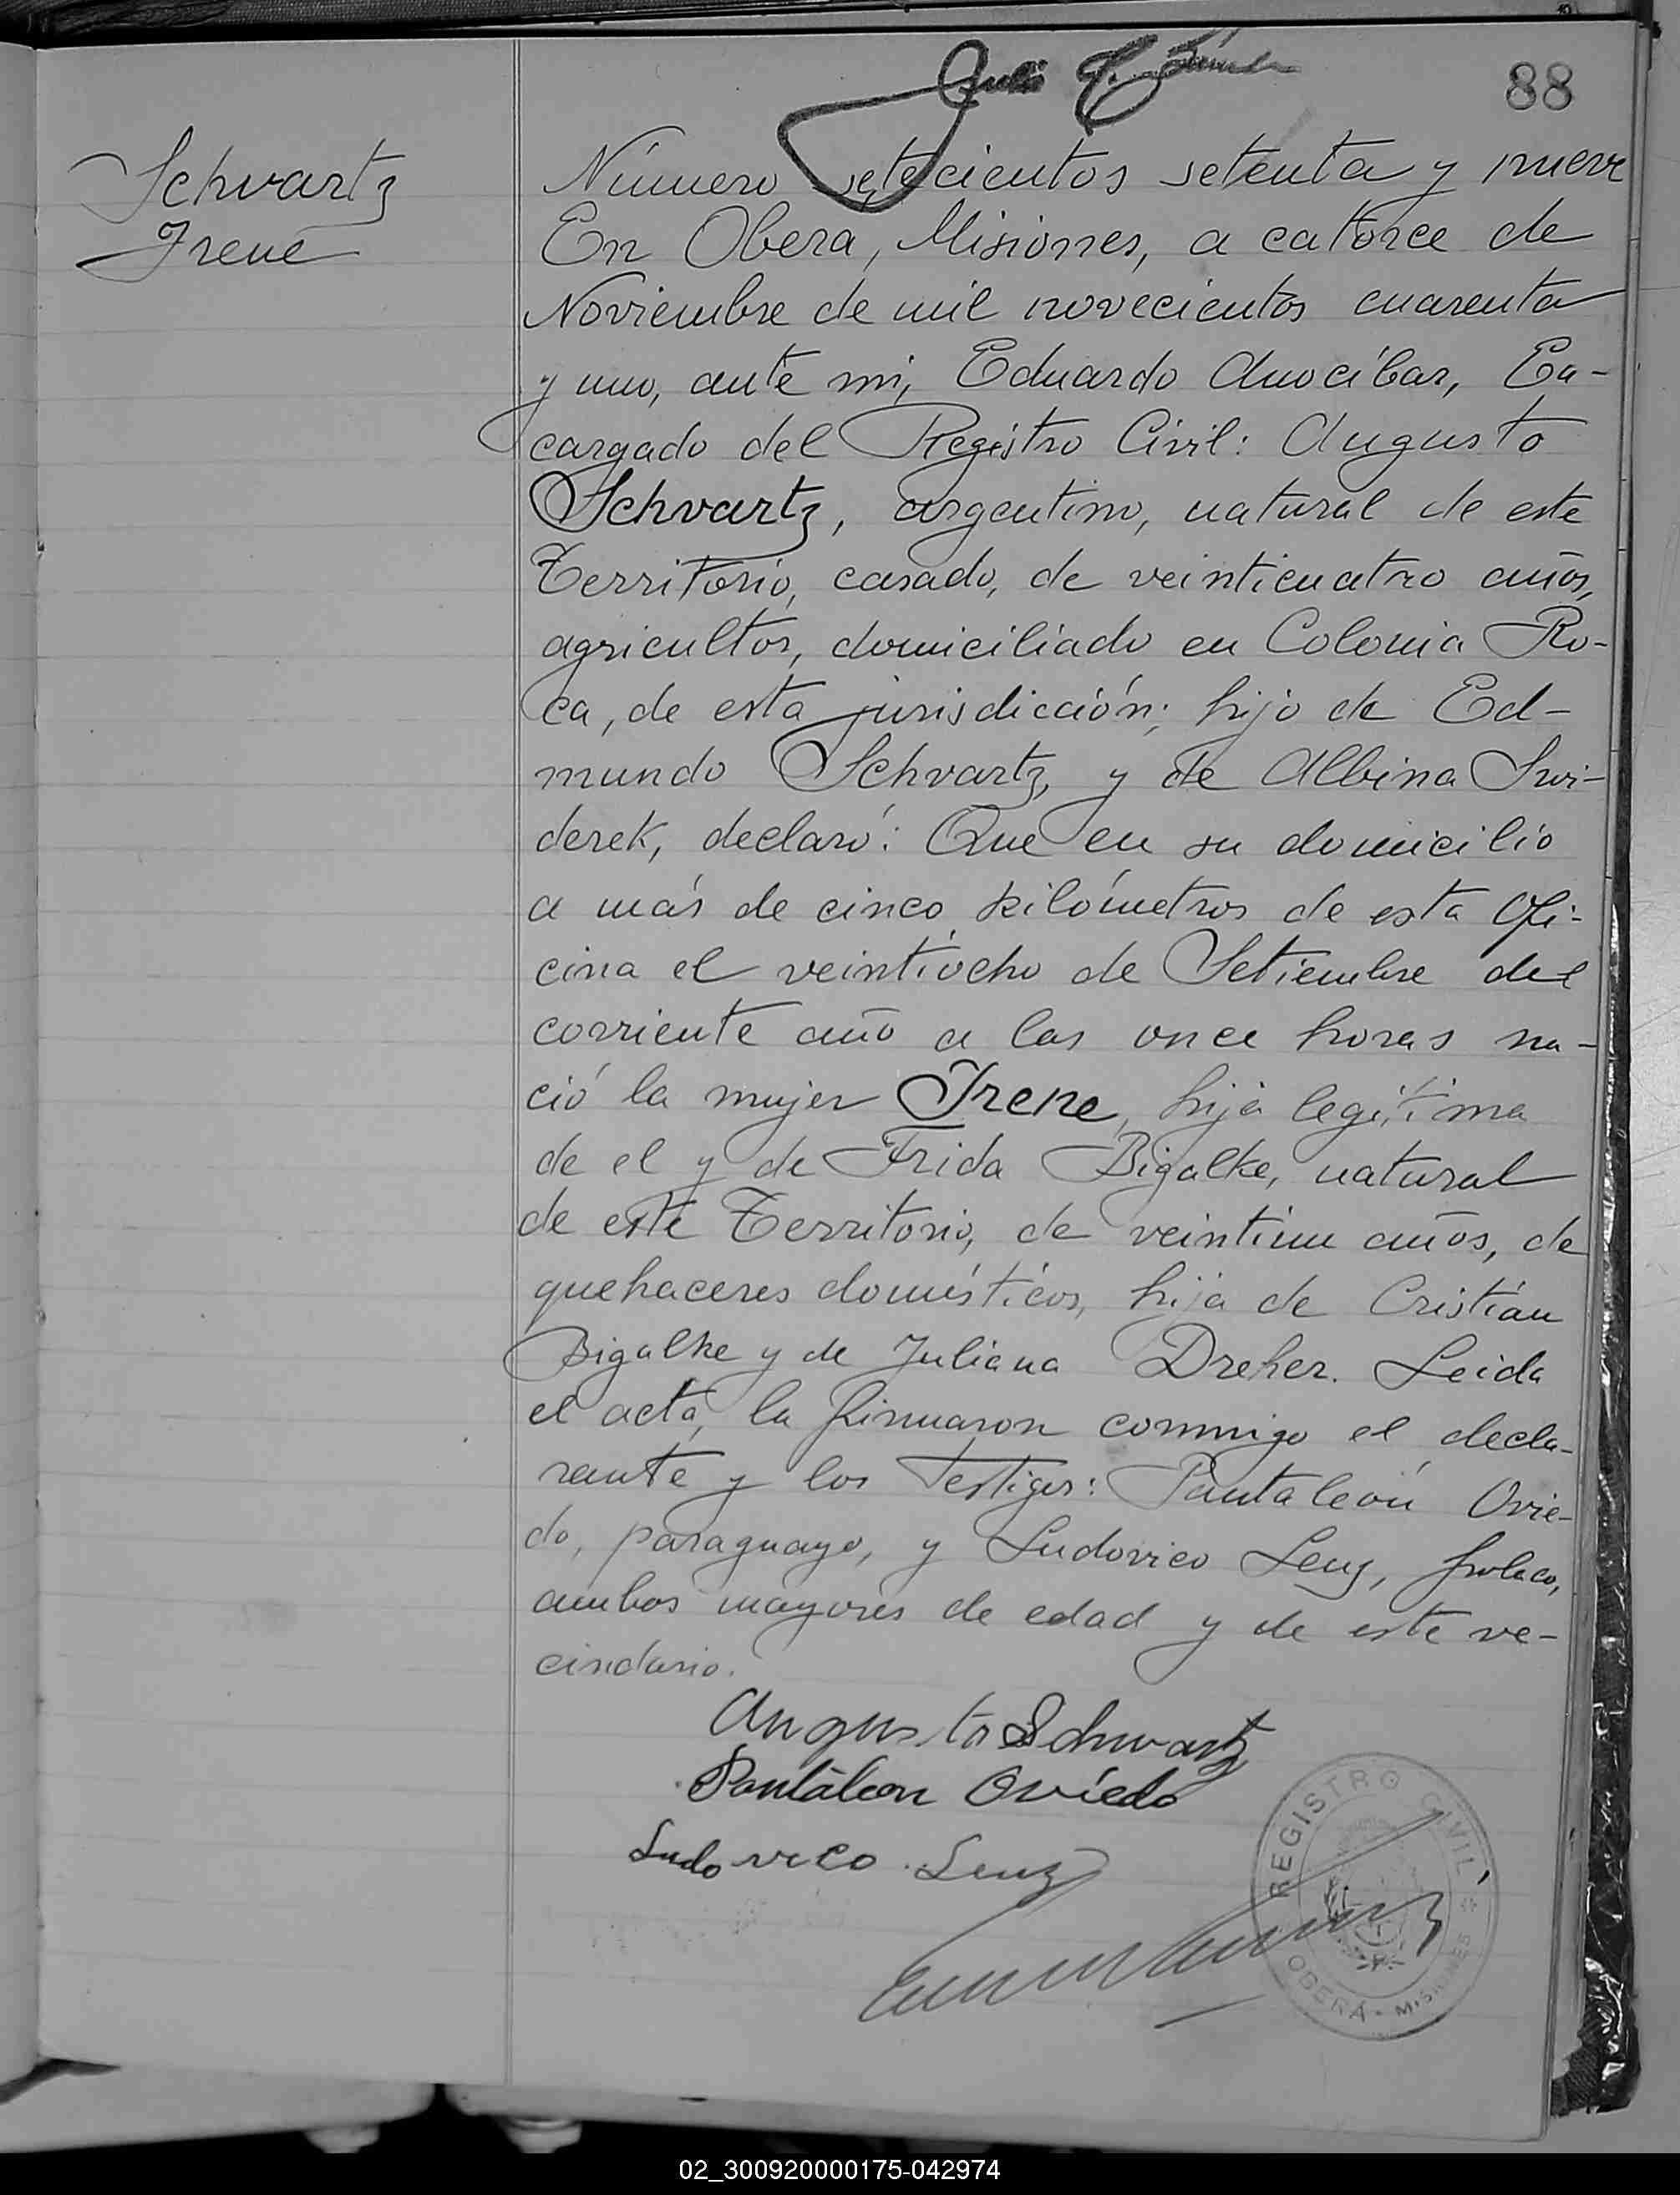 88
Schvartz
Irene
Número setecientos setenta y nueve
En Obera, Misiones, a catorce de
Noviembre de mil novecientos cuarenta
y uno, ante mi, Eduardo Anocibar, En-
cargado del Registro Civil: Augusto
Schvartz, argentino, natural de este
Territorio, casado, de veinticuatro años,
agricultor, domiciliado en Colonia Ro-
ca, de esta jurisdicción; hijo de Ed-
mundo Schvartz, y de Albina Swi-
derek, declaró: Que en su domicilio
a más de cinco kilómetros de esta Ofi-
cina el veintiocho de Setiembre del
corriente año a las once horas na-
ció la mujer Irene, hija legítima
de el y de Frida Bigalke, natural
de este Territorio, de veintiun años, de
quehaceres domésticos, hija de Cristián
Bigalke y de Juliana Dreher. Leida
el acta, la firmaron conmigo el decla-
rante y los testigos: Pantaleón Ovie-
do, paraguayo, y Ludovico Lenz, polaco,
ambos mayores de edad y de este ve-
cindario.
Augusto Schwartz
Pantaleon Oviedo
Ludovico Lenz
REGISTRO CIVIL
OBERÁ - MISIONES
02_300920000175-042974